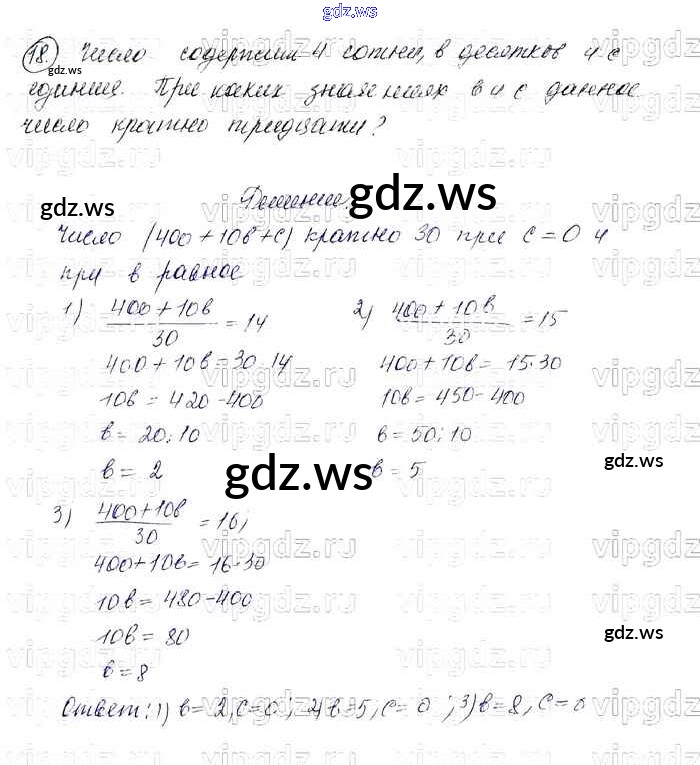 gdz.ws
18. Число содержит 4 сотни, в десятков и с
единиц. При каких значениях в и с данное
число кратно тридцати?
Решение.
Число (400 + 10в + с) кратно 30 при с = 0 и
при в равное
1) (400 + 10в)/30 = 14
400 + 10в = 30·14
10в = 420 - 400
в = 20:10
в = 2
2) (400 + 10в)/30 = 15
400 + 10в = 15·30
10в = 450 - 400
в = 50:10
в = 5
3) (400 + 10в)/30 = 16;
400 + 10в = 16·30
10в = 480 - 400
10в = 80
в = 8
Ответ: 1) в = 2, с = 0; 2) в = 5, с = 0; 3) в = 8, с = 0
gdz.ws
gdz.ws
gdz.ws
gdz.ws
gdz.ws
gdz.ws
gdz.ws
gdz.ws
vipgdz.ru